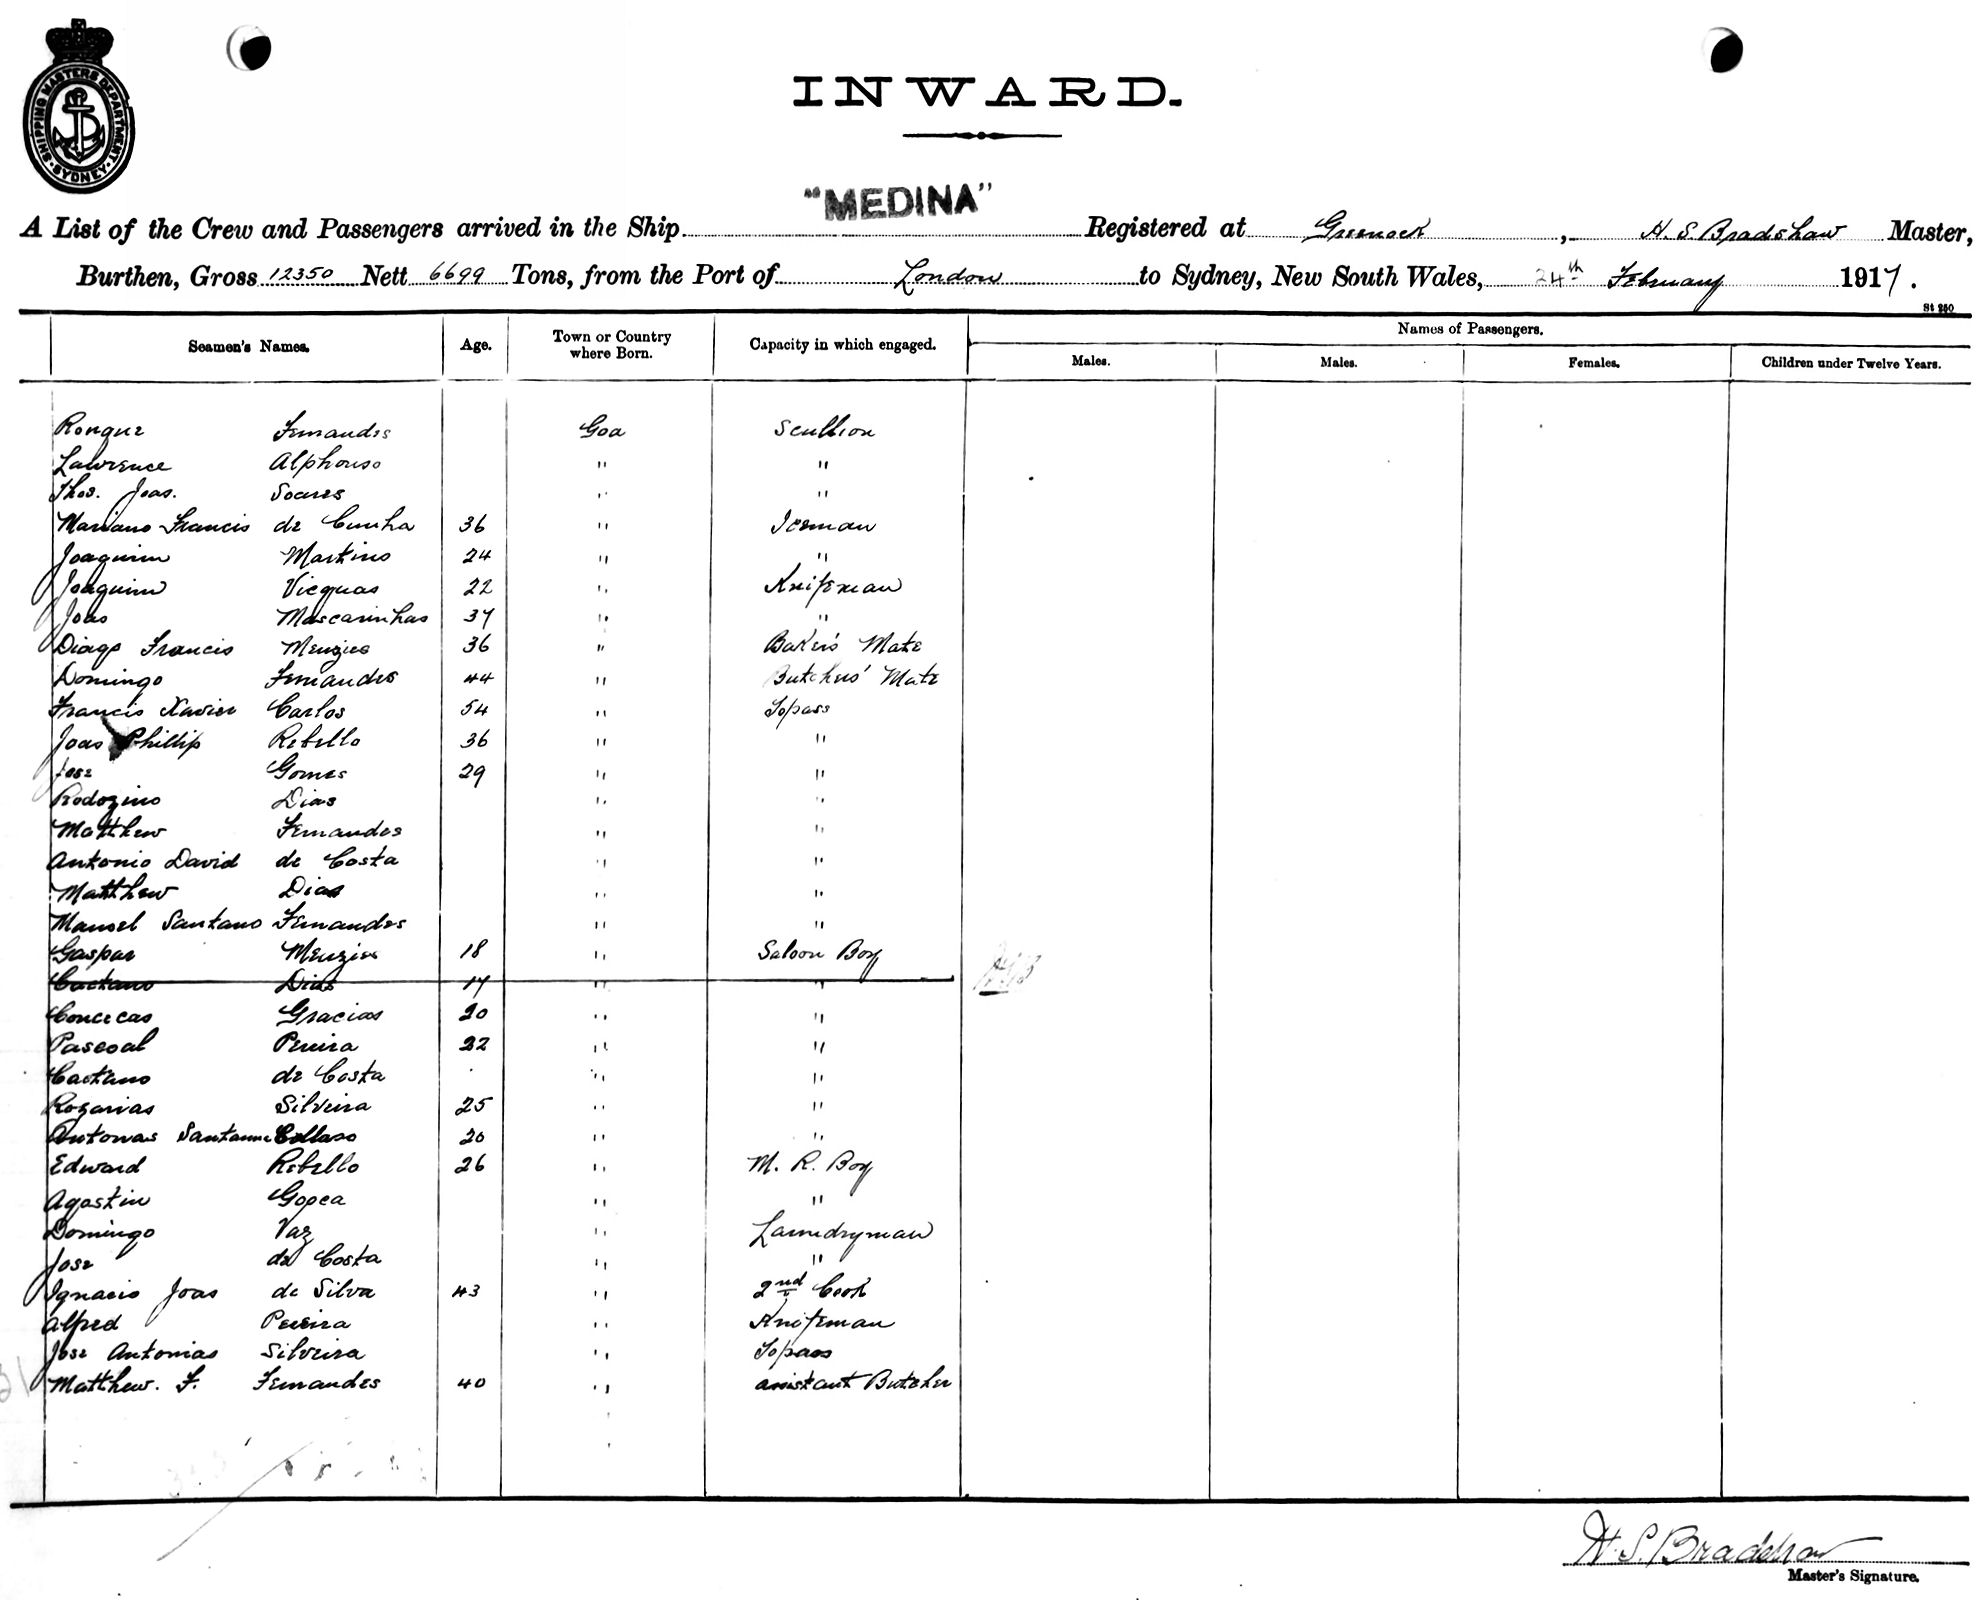 SHIPPING MASTERS DEPARTMENT · SYDNEY ·
INWARD.
"MEDINA"
A List of the Crew and Passengers arrived in the Ship Registered at Greenock, H. S. Bradshaw Master,
Burthen, Gross 12350 Nett 6699 Tons, from the Port of London to Sydney, New South Wales, 24th February 1917.
St 250
Seamen's Names. Age. Town or Country where Born. Capacity in which engaged. Names of Passengers.
Males. Males. Females. Children under Twelve Years.
Ronque Fernandes Goa Scullion
Lawrence Alphonso " "
Thos. Joas. Soares " "
Mariano Francis de Cunha 36 " Iceman
Joaquim Martins 24 " "
Joaquim Viegas 22 " Knifeman
Joas Mascarinhas 37 " "
Diago Francis Menzies 36 " Baker's Mate
Domingo Fernandes 44 " Butchers' Mate
Francis Xavier Carlos 54 " Topass
Joas Phillip Rebello 36 " "
Jose Gomes 29 " "
Rodozino Dias " "
Matthew Fernandes " "
Antonio David de Costa " "
Matthew Dias " "
Manoel Santano Fernandes " "
Gaspar Menzies 18 " Saloon Boy
Caetano Dias 17 " "
Concecas Gracias 20 " "
Pascoal Pereira 22 " "
Caetano de Costa " "
Rozarias Silveira 25 " "
Antonas Santanne Collaso 20 " "
Edward Rebello 26 " M. R. Boy
Agostin Gopea " "
Domingo Vaz " Laundryman
Jose de Costa " "
Ignacio Joas de Silva 43 " 2nd Cook
Alfred Pereira " Knifeman
Jose Antonias Silveira " Topass
Matthew. F. Fernandes 40 " assistant Butcher
H. S. Bradshaw
Master's Signature.